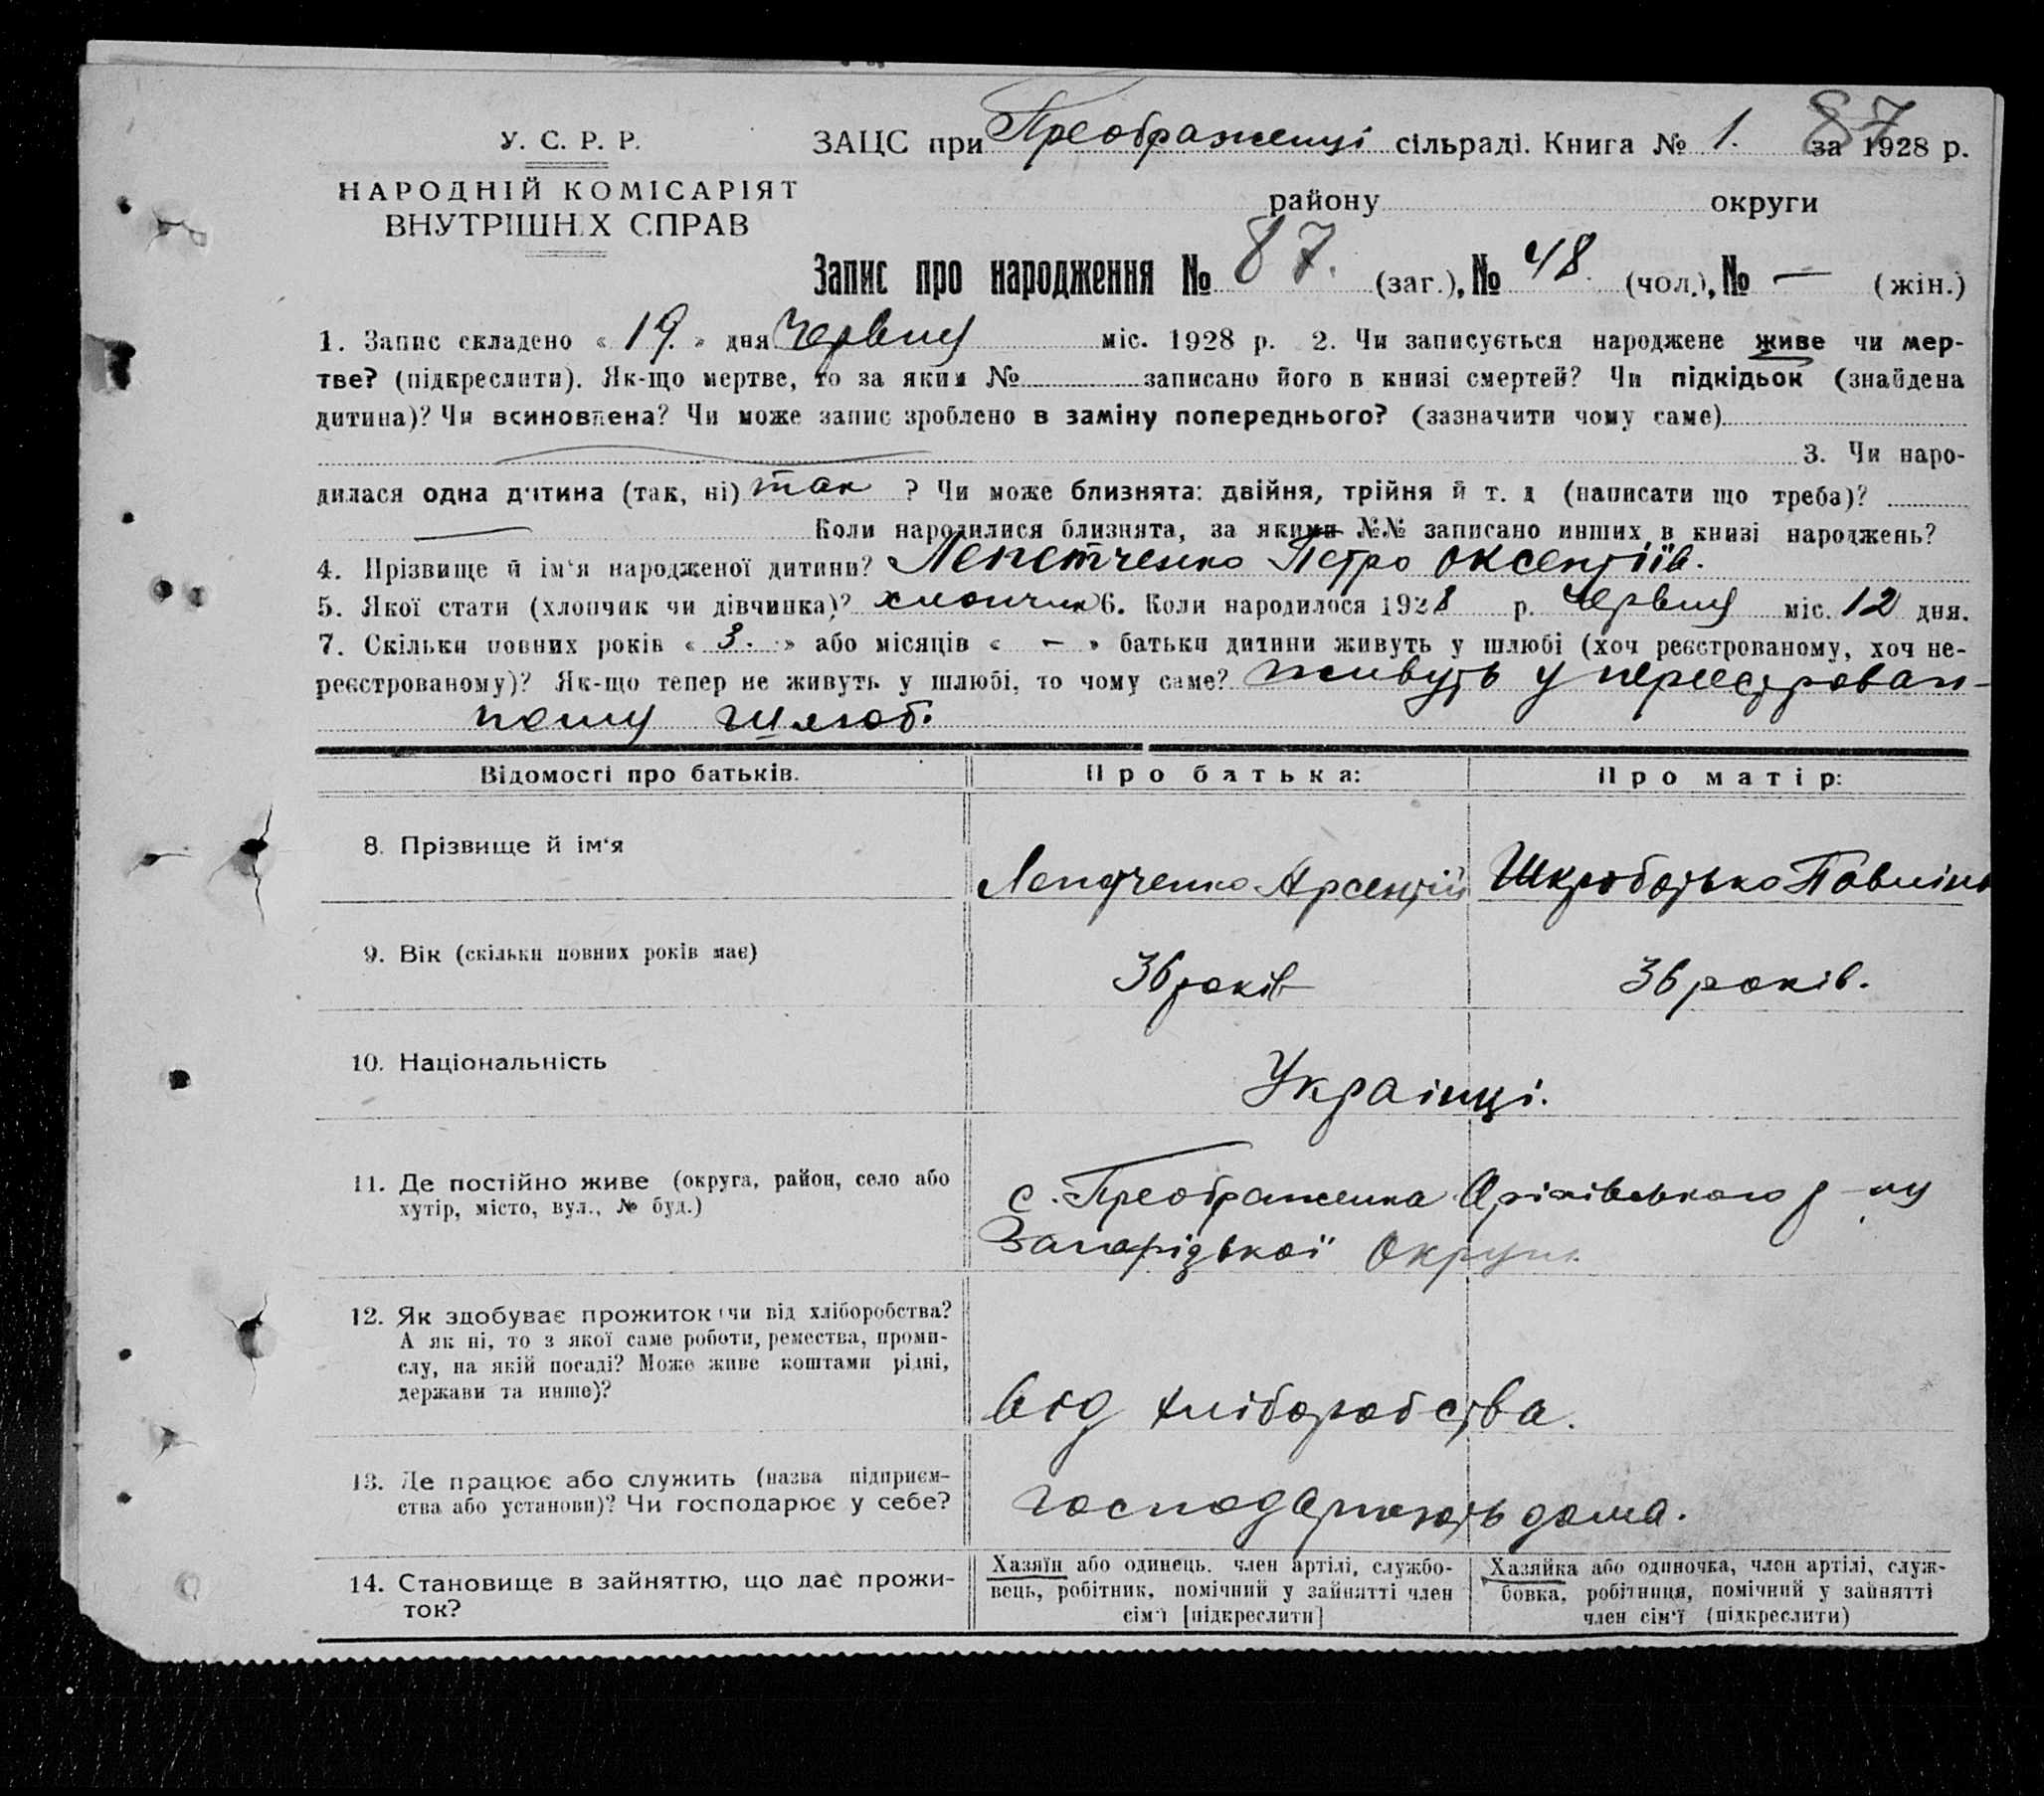 87
У. С. Р. Р.
ЗАЦС при Преображенці сільраді. Книга № 1. за 1928 р.
НАРОДНІЙ КОМІСАРІЯТ
ВНУТРІШН.Х СПРАВ
району округи
Запис про народження № 87. (заг.), № 48. (чол.), № — (жін.)
1. Запис складено « 19. » дня Червня міс. 1928 р. 2. Чи записується народжене живе чи мер-
тве? (підкреслити). Як-що мертве, то за яким № записано його в книзі смертей? Чи підкідьок (знайдена
дитина)? Чи всиновлена? Чи може запис зроблено в заміну попереднього? (зазначити чому саме)
3. Чи наро-
дилася одна дитина (так, ні) так ? Чи може близнята: двійня, трійня й т. д (написати що треба)?
— Коли народилися близнята, за якими №№ записано инших в книзі народжень?
4. Прізвище й ім‘я народженої дитини? Лепетченко Петро Оксентіїв.
5. Якої стати (хлопчик чи дівчинка)? хлопчик 6. Коли народилося 1928 р. Червня міс. 12 дня.
7. Скільки повних років « 3. » або місяців « — » батьки дитини живуть у шлюбі (хоч реєстрованому, хоч не-
реєстрованому)? Як-що тепер не живуть у шлюбі, то чому саме? живуть у
шлюб.
Відомості про батьків. Про батька: Про матір:
8. Прізвище й ім‘я
Арсентій Шкроботько Павліна
9. Вік (скільки повних років має)
36 років 36 років.
10. Національність
Українці.
11. Де постійно живе (округа, район, село або
хутір, місто, вул., № буд.)
с. Преображенка Оріхівського р-ну
Запорізької Округи
12. Як здобуває прожиток: чи від хліборобства?
А як ні, то з якої саме роботи, ремества, проми-
слу, на якій посаді? Може живе коштами рідні,
держави та инше)?
від хліборобства.
13. Де працює або служить (назва підприєм-
ства або установи)? Чи господарює у себе?
господарюють дома.
14. Становище в зайняттю, що дає прожи-
ток?
Хазяїн або одинець. член артілі, службо-
вець, робітник, помічний у зайнятті член
сім‘ї [підкреслити]
Хазяйка або одиночка, член артілі, служ-
бовка, робітниця, помічний у зайнятті
член сім‘ї (підкреслити)